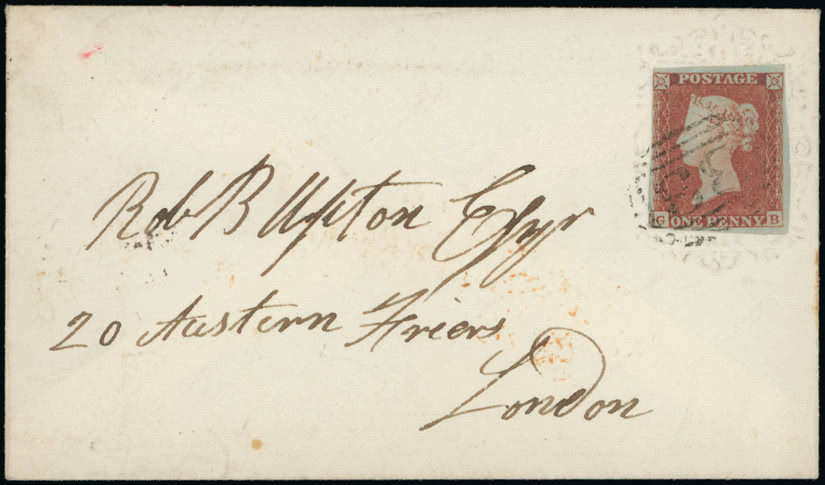 POSTAGE
G ONE PENNY B
Rob B Upton Esqr
20 Austern Friers
London